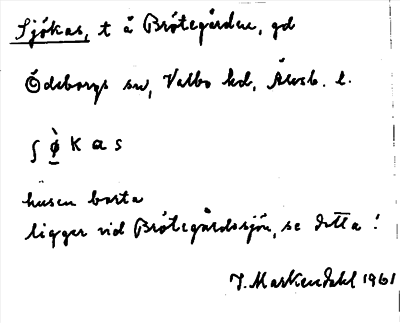 Sjökas, t å Brötegården, gd
Ödsborgs sn, Valbo hd, Älvsb. l.
ʃ ø̀ k a s
husen borta
ligger vid Brötegårdssjön, se detta!
J. Markendahl 1961